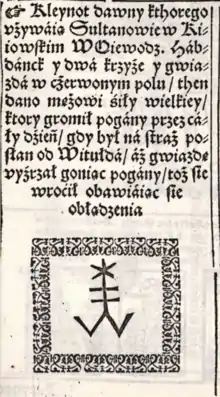 ☞ Kleynot dawny kthorego
vżywáią Sultanowie w Ki-
iowskim Woiewodz. Háb-
dánck y dwá krzyże y gwia-
zdá w czerwonym polu / then
dano mężowi siły wielkiey /
ktory gromił pogány przez cá-
ły dzień / gdy był ná straż po-
słan od Witułdá / áż gwiazdę
vyźrzał goniąc pogány / toż się
wroćił obawiáiąc się
obłądzenia